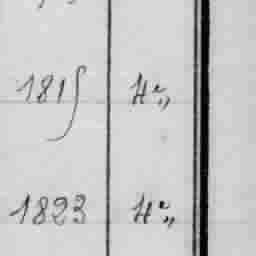 1815 H°„
1823 H°„